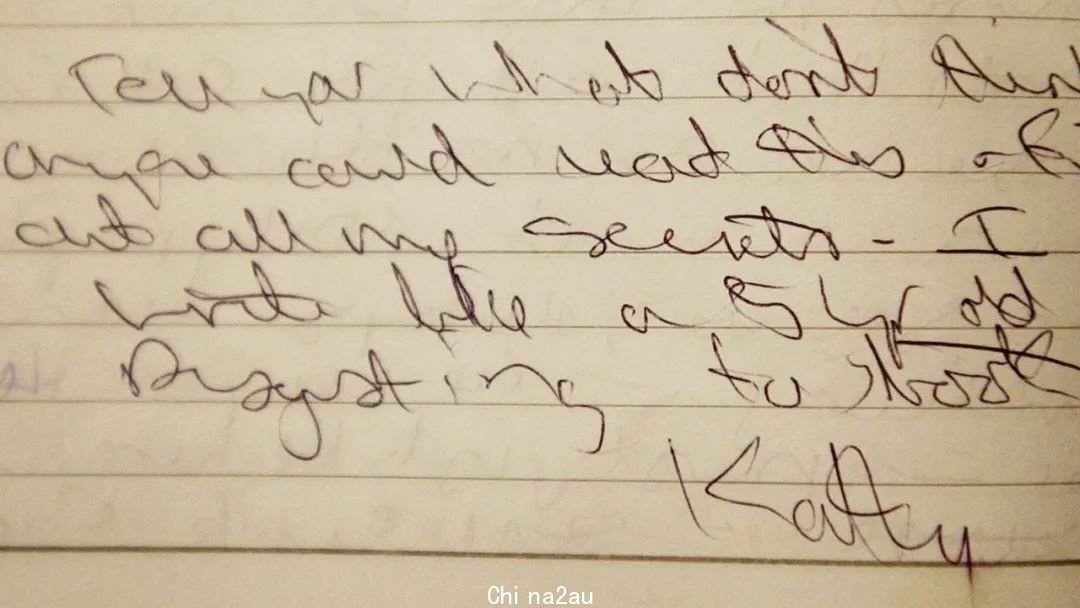 Tell you what don't think
anyone could read this - fi
out all my secrets - I
write like a 5 yr old
Disgusting to
Kathy
Chi na2au